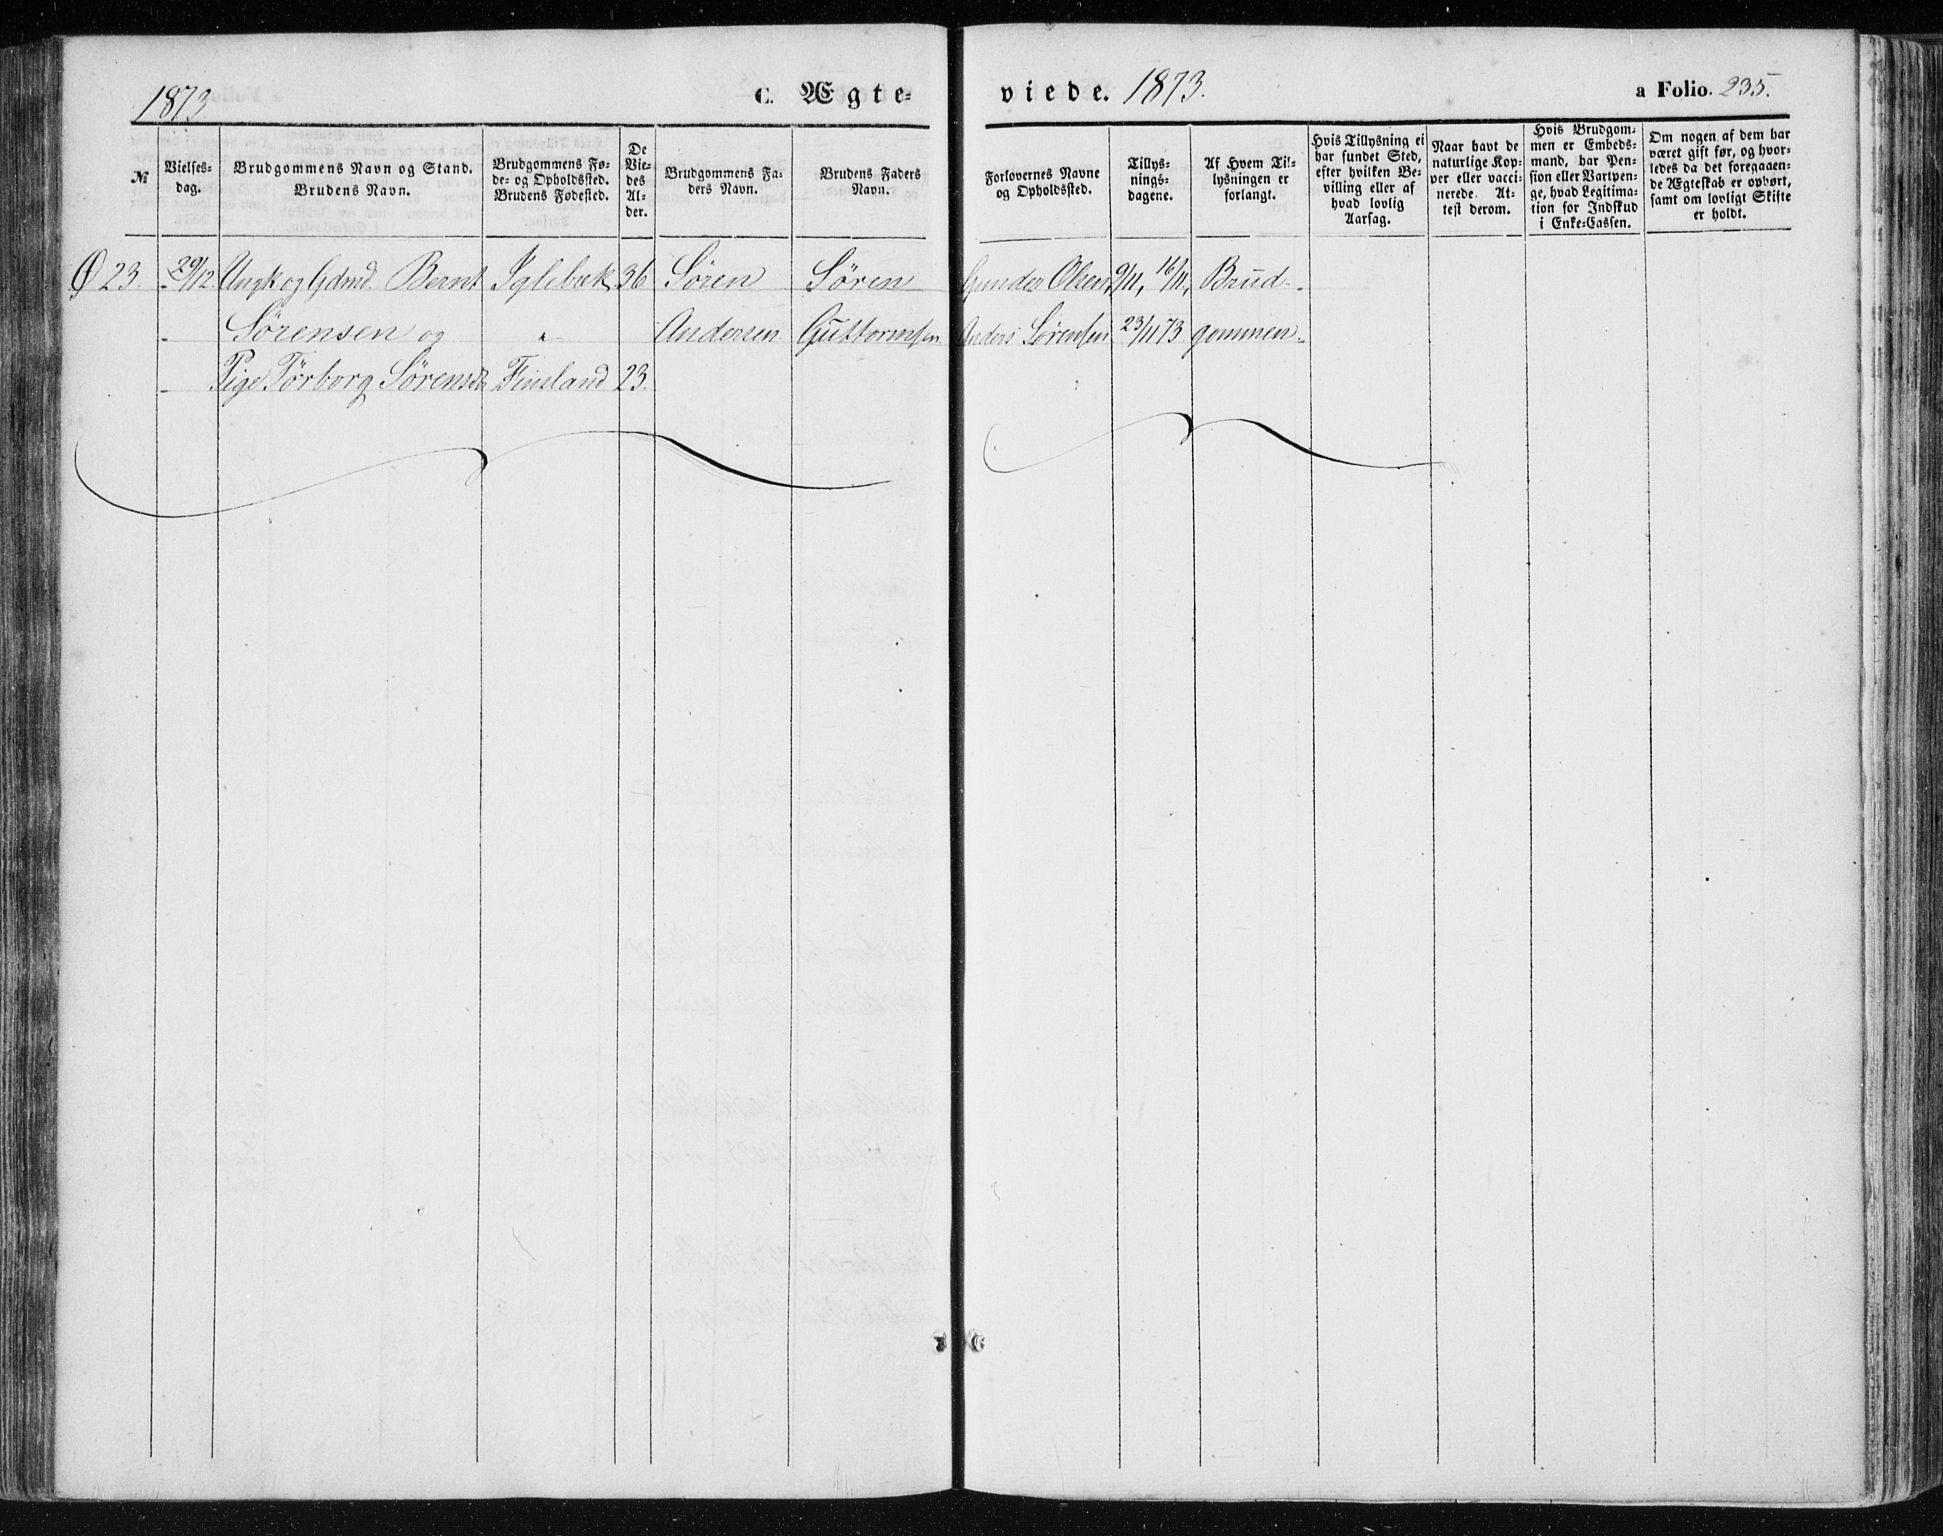 1873
C. Ægte-
viede. 1873.
a Folio. 235.
№
Vielses-
dag.
Brudgommens Navn og Stand.
Brudens Navn.
Brudgommens Fø-
de- og Opholdssted.
Brudens Fødested.
De
Vie-
des
Al-
der.
Brudgommens Fa-
ders Navn.
Brudens Faders
Navn.
Forlovernes Navne
og Opholdssted.
Tillys-
nings-
dagene.
Af Hvem Til-
lysningen er
forlangt.
Hvis Tillysning ei
har fundet Sted,
efter hvilken Be-
villing eller af
hvad lovlig
Aarsag.
Naar havt de
naturlige Kop-
per eller vacci-
nerede. At-
test derom.
Hvis Brudgom-
men er Embeds-
mand, har Pen-
sion eller Vartpen-
ge, hvad Legitima-
tion for Indskud
i Enke-Cassen.
Om nogen af dem har
været gift før, og hvor-
ledes da det foregaaen-
de Ægteskab er ophørt,
samt om lovligt Skifte
er holdt.
Ø 23. 29/12 Ungk og Gdmd. Bernt Iglebæk 36 Søren Søren Gunder Olsen, 9/11, 16/11, Brud-
Sørensen og " Andersen Guttormsen Anders Sørensen 23/11 73 gommen.
Pige Törborg Sørensdr Finsland 23.